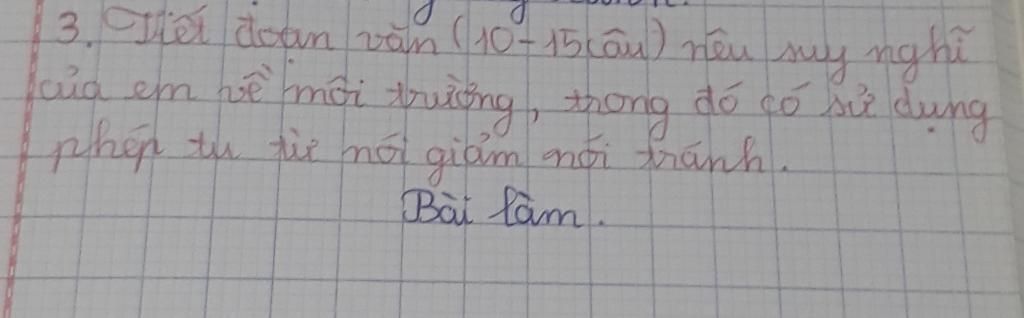 3. Viết đoạn văn (10-15 câu) nêu suy nghĩ
của em về môi trường, trong đó có sử dụng
phép tu từ nói giảm nói tránh.
Bài làm.